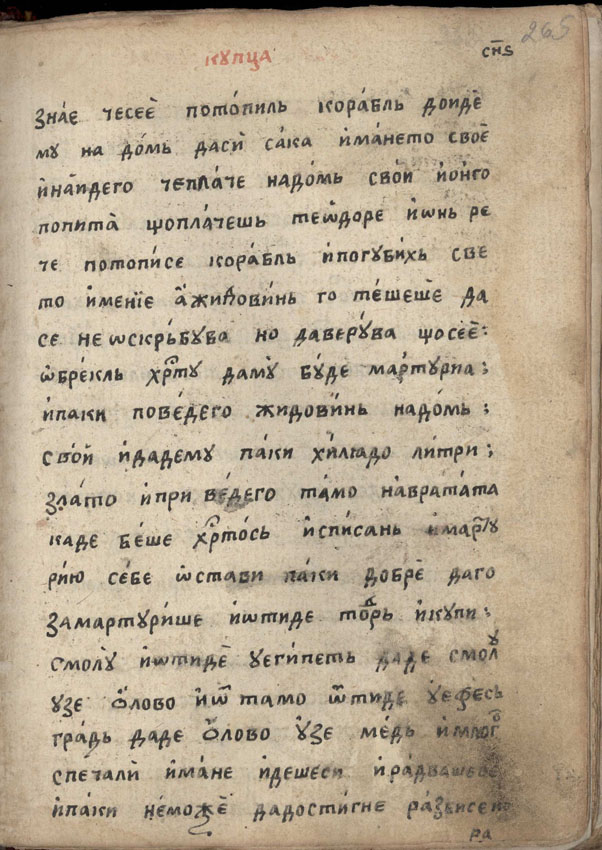 265
кꙋпца
снѕ
зна́е чесеѐ пото́пиль кора́бль доидѐ
мꙋ на до́мь дасѝ са́ка и҆ма́нето своѐ
и҆на́идего чепла́че надо́мь сво́и и҆о́нго
попита̀ що́пла́чешь теѡ҆́доре и҆ѡ҆нь ре
че потопи́се кора́бль и҆погꙋби́хь све
то и҆ме́нїе а҆жидови́нь го те́шешѐ да
се не ѡскрь́бꙋва но даверꙋ́ва що́сеѐ:
ѡ҆бре́кль хрⷭ҇тꙋ да́мꙋ бꙋ́де ма́ртꙋриа;
и҆паки пове́дего жидови́нь надо́мь;
сво́и и҆дадемꙋ па́ки хи́лꙗдо ли́три;
зла́то и҆при ве́дего та́мо на́врата́та
каде бе́ше хрⷭ҇то́сь и҆спи́сань и҆марⷮꙋ
ри́ю се́бе ѡ҆стави па́ки добрѐ даго
замартꙋри́ше и҆ѡтиде то́дⷣрь и҆кꙋпи:
смо́лꙋ и҆ѡтидѐ ꙋеги́петь даде смолꙋ
ꙋзе о҆́лово и҆ѿ та́мо ѿти́де ꙋ҆ефе́сь
гра́дь даде о҆́лово ꙋ҆́зе ме́дь и҆мло́гⷪ
спе́чали и҆ма́не и҆дешеси
и҆паки не́може дадости́гне
ра